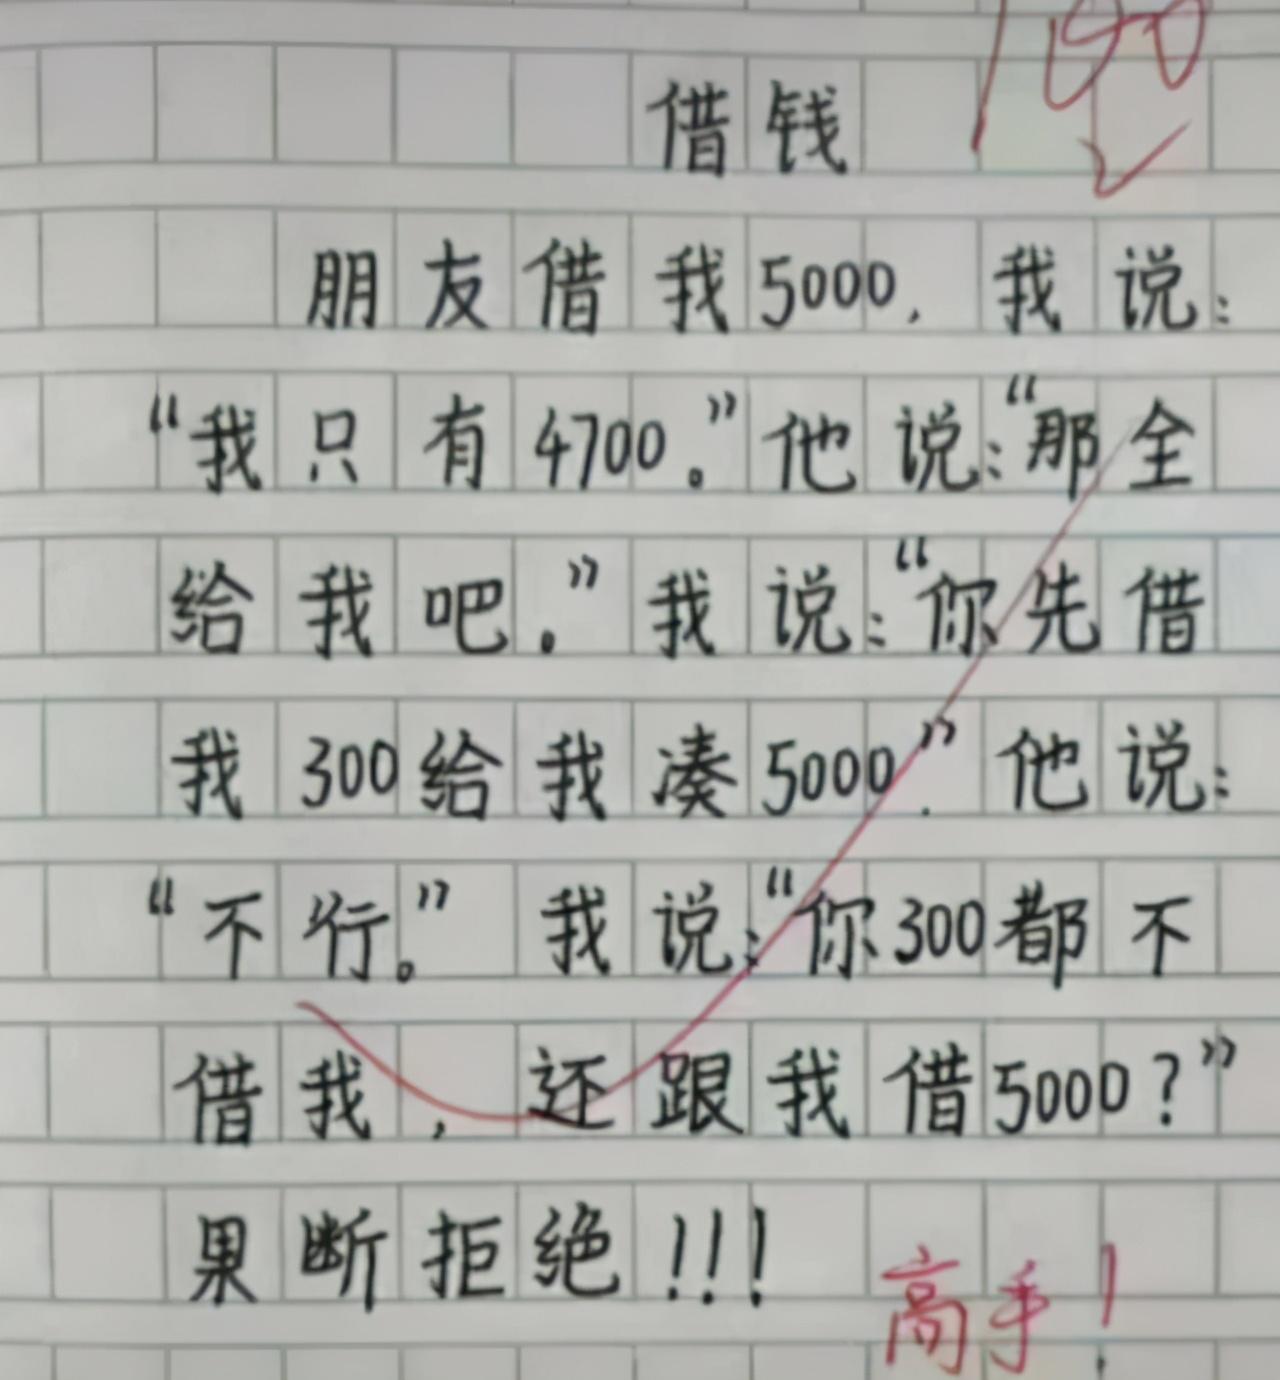 100
借钱
朋友借我5000，我说：
“我只有4700。”他说：“那全
给我吧。”我说：“你先借
我300给我凑5000.”他说：
“不行。”我说：“你300都不
借我，还跟我借5000？”
果断拒绝！！！
高手！